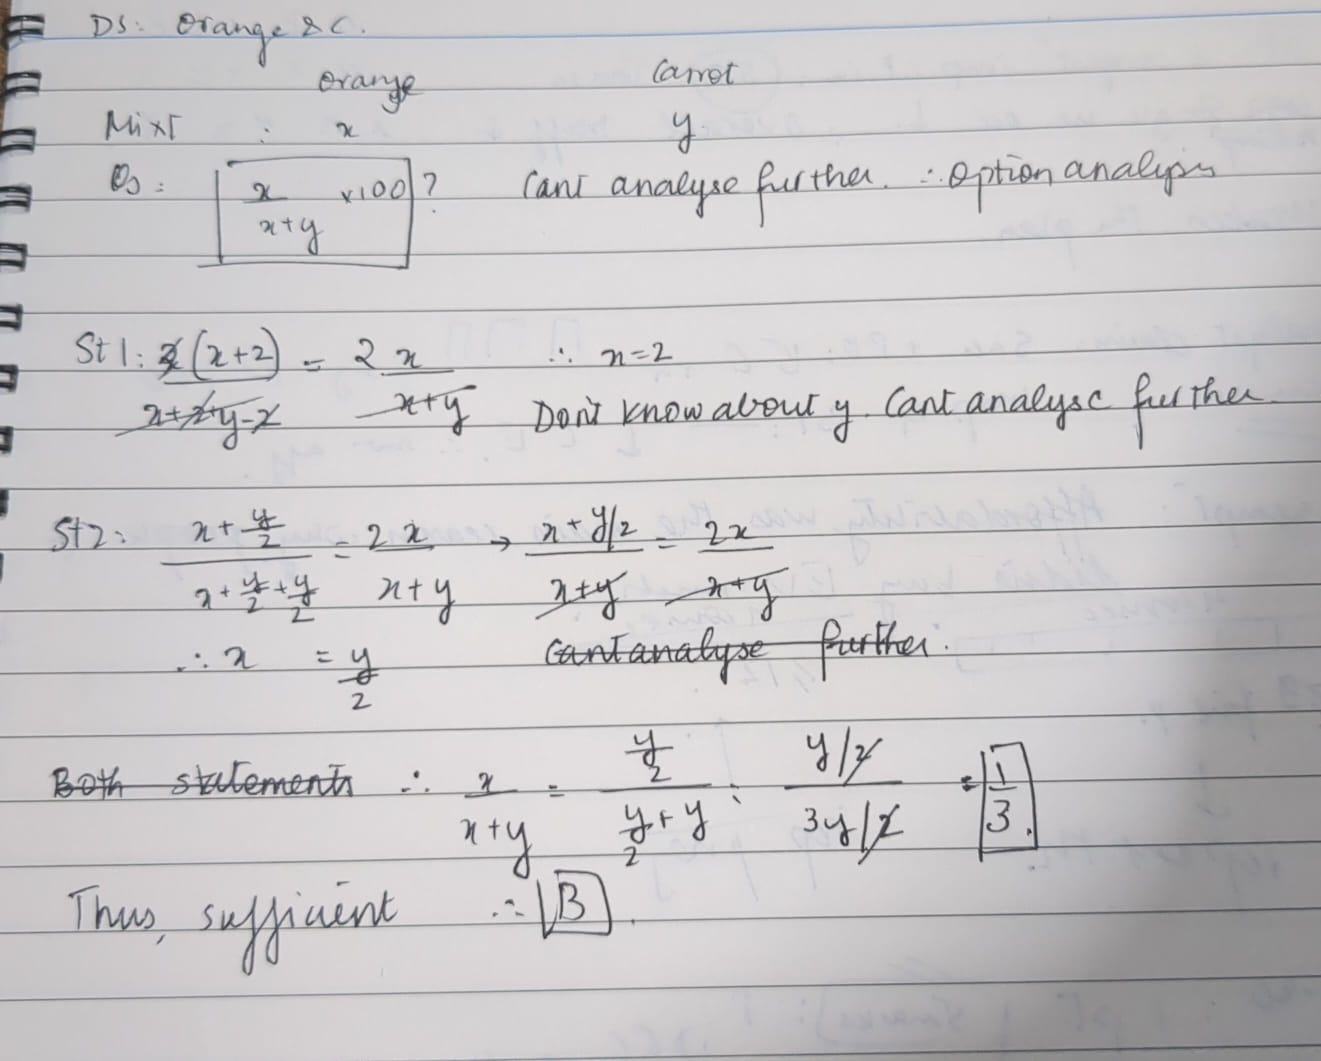 DS: Orange & C.
orange Carrot
Mixt : x y
Qs: x/(x+y) ×100 ? Cant analyse further. ∴ Option analysis
St 1: (x+2)/(x+2+y-2) = 2x/(x+y) ∴ x=2
Don't know about y. Cant analyse further.
St 2: (x + y/2)/(x + y/2 + y/2) = 2x/(x+y) → (x + y/2)/(x+y) = 2x/(x+y)
∴ x = y/2 Cant analyse further.
Both statements ∴ x/(x+y) = (y/2)/(y/2 + y) = (y/2)/(3y/2) = 1/3.
Thus, sufficient ∴ B.